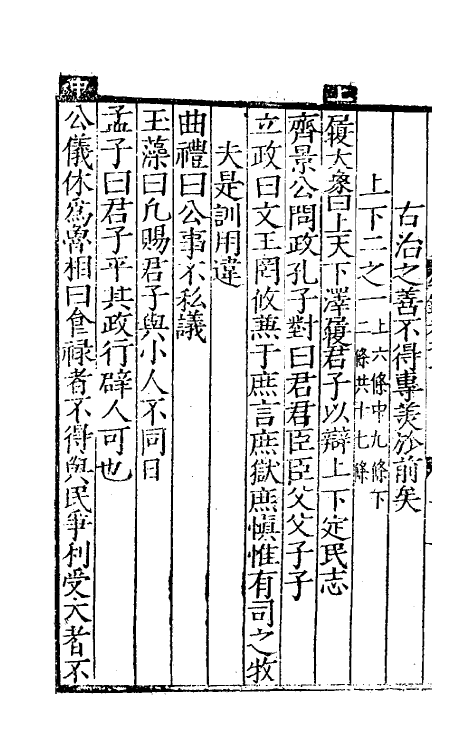 右治之善不得專美於前矣
上下二之一上六條中九條下二條共十七條
上
履大象曰上天下澤履君子以辯上下定民志
齊景公問政孔子對曰君君臣臣父父子子
立政曰文王罔攸兼于庶言庶獄庶愼惟有司之牧
夫是訓用違
曲禮曰公事不私議
玉藻曰凡賜君子與小人不同日
孟子曰君子平其政行辟人可也
中
公儀休爲魯相曰食祿者不得與民爭利受大者不